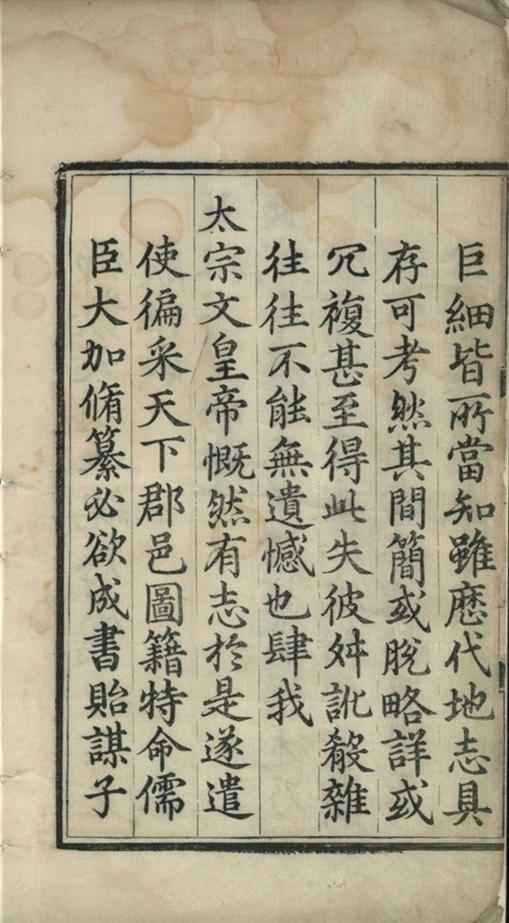 巨細皆所當知雖歷代地志具
存可考然其間簡或脫略詳或
冗複甚至得此失彼舛訛殽雜
往往不能無遺憾也肆我
太宗文皇帝慨然有志於是遂遣
使徧采天下郡邑圖籍特命儒
臣大加脩纂必欲成書貽謀子